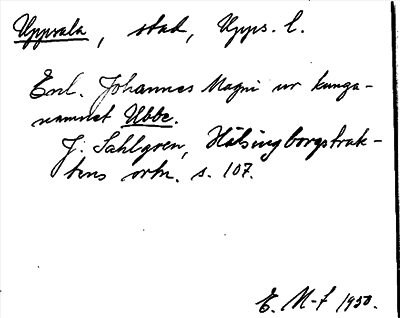 Uppsala, stad, Upps. l.
Enl. Johannes Magni ur kunga-
namnet Ubbe.
J. Sahlgren, Hälsingborgstrak-
tens ortn. s. 107.
E. M-f 1950.